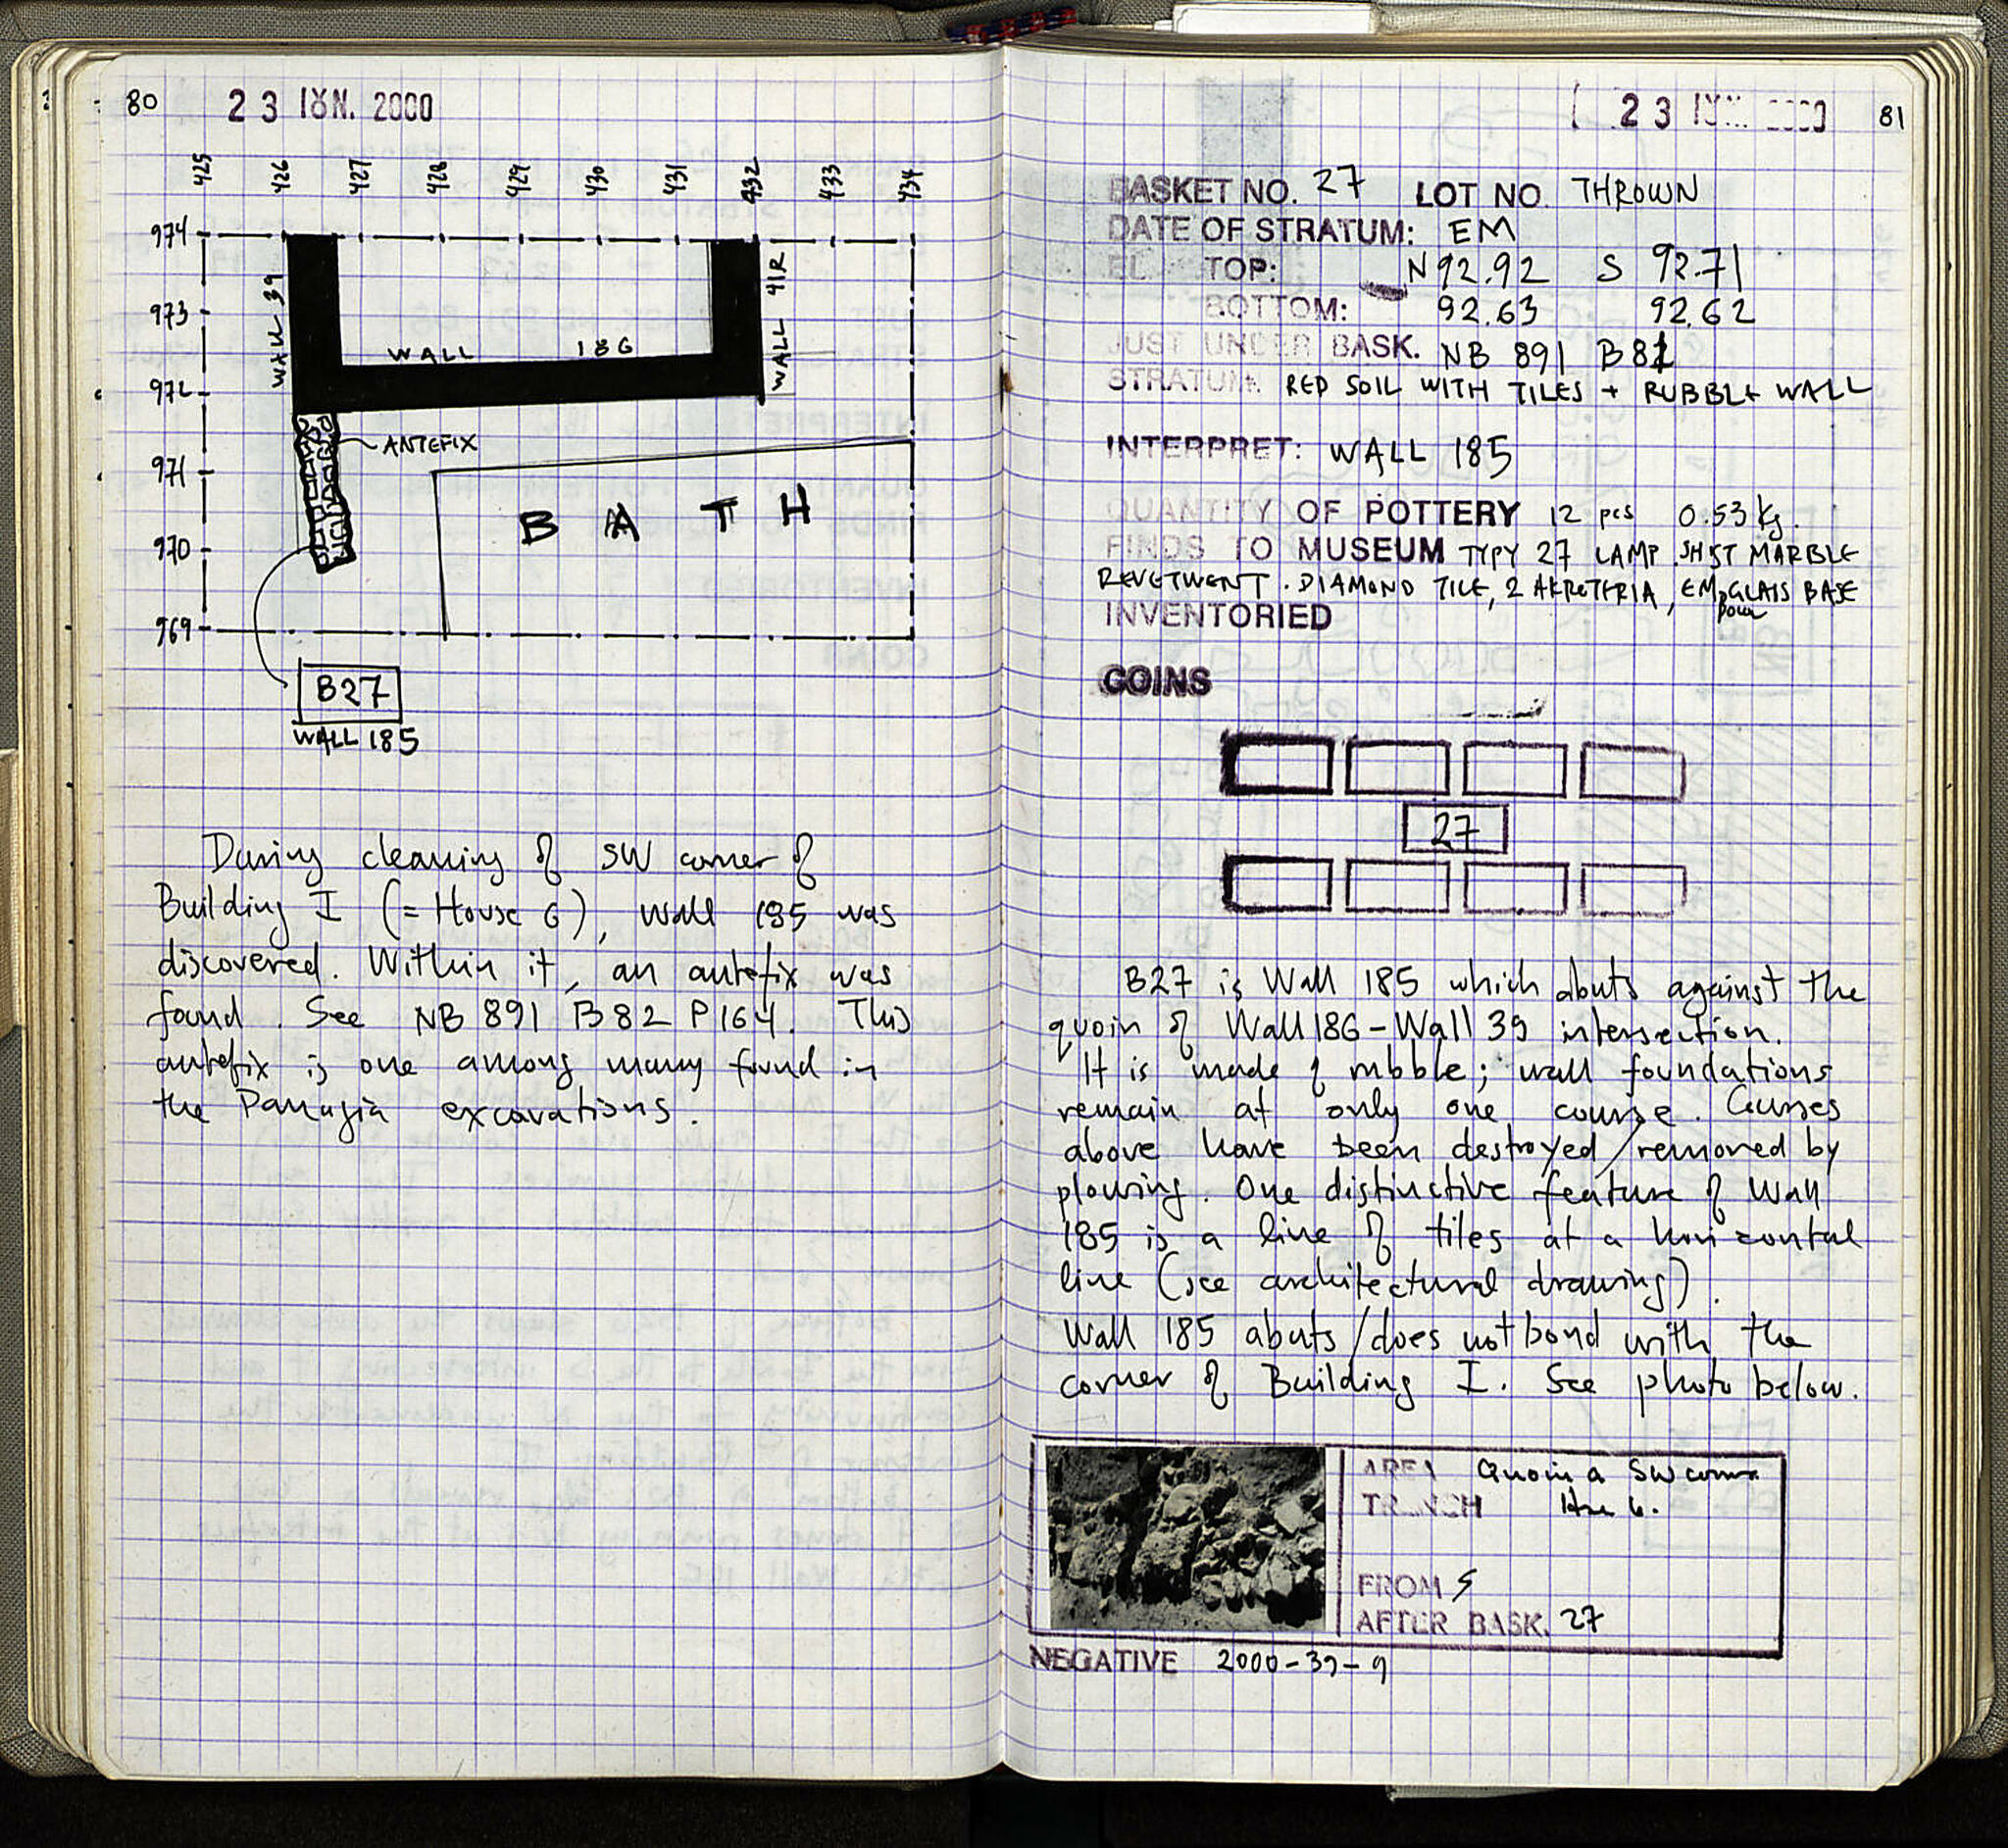 80
23 ΙΟΥΝ. 2000
425 426 427 428 429 430 431 432 433 434
974
973
972
971
970
969
WALL 39
WALL 186
WALL 41R
ANTEFIX
BATH
B27
WALL 185
During cleaning of SW corner of
Building I (= House 6), Wall 185 was
discovered. Within it, an antefix was
found. See NB 891 B82 P164. This
antefix is one among many found in
the Panagia excavations.
23 2000
81
BASKET NO. 27 LOT NO. THROWN
DATE OF STRATUM: EM
EL TOP: N 92.92 S 92.71
BOTTOM: 92.63 92.62
JUST UNDER BASK. NB 891 B81
STRATUM: RED SOIL WITH TILES + RUBBLE WALL
INTERPRET: WALL 185
QUANTITY OF POTTERY 12 pcs 0.53 kg.
FINDS TO MUSEUM TYPY 27 LAMP. MARBLE
REVETMENT. DIAMOND TILE, 2 AKROTERIA, BASE
INVENTORIED
COINS
27
B27 is Wall 185 which abuts against the
quoin of Wall 186 - Wall 39 intersection.
It is made of rubble; wall foundations
remain at only one course. Courses
above have been destroyed/removed by
plowing. One distinctive feature of Wall
185 is a line of tiles at a horizontal
line (see architectural drawing).
Wall 185 abuts/does not bond with the
corner of Building I. See photo below.
AREA Quoin SW corner
TRENCH Hse 6.
FROM S
AFTER BASK. 27
NEGATIVE 2000-39-9